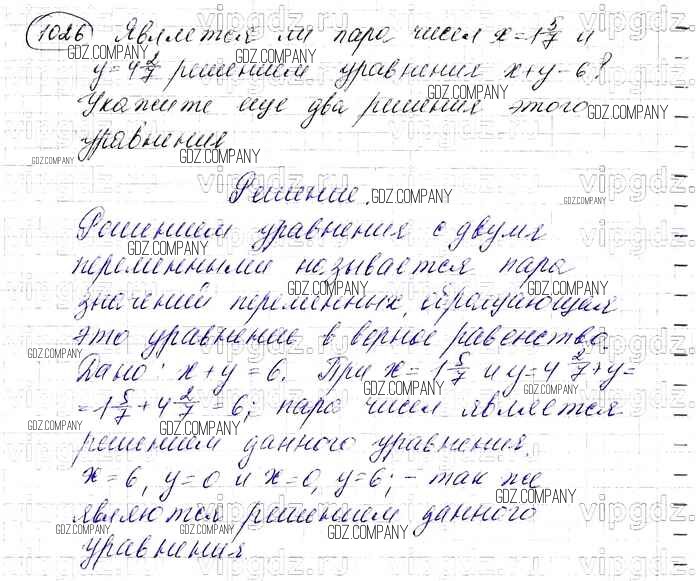 1026 Является ли пара чисел x=1 5/7 и
y=4 2/7 решением уравнения x+y=6?
Укажите еще два решения этого
уравнения
Решение.
Решением уравнения с двумя
переменными называется пара
значений переменных, обращающая
это уравнение в верное равенство.
Дано: x+y=6. При x=1 5/7 и y=4 2/7 x+y=
=1 5/7+4 2/7=6; пара чисел является
решением данного уравнения.
x=6, y=0 и x=0, y=6; – так же
являются решением данного
уравнения
GDZ.COMPANY
vipgdz.ru